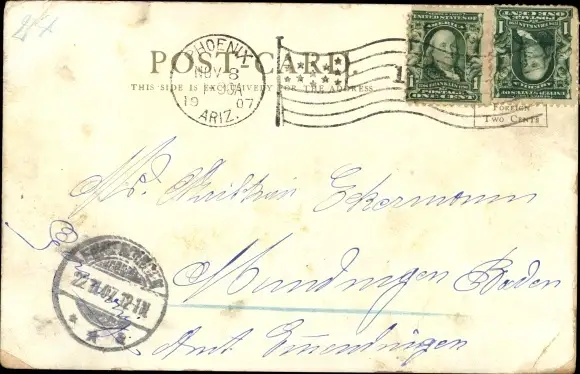 POST CARD.
THIS SIDE IS EXCLUSIVELY FOR THE ADDRESS.
PHOENIX
NOV 8
1907
ARIZ.
UNITED STATES OF AMERICA
POSTAGE
ONE CENT
1
1
FOREIGN
TWO CENTS
Eckermann
Mundingen Baden
Amt Emmendingen